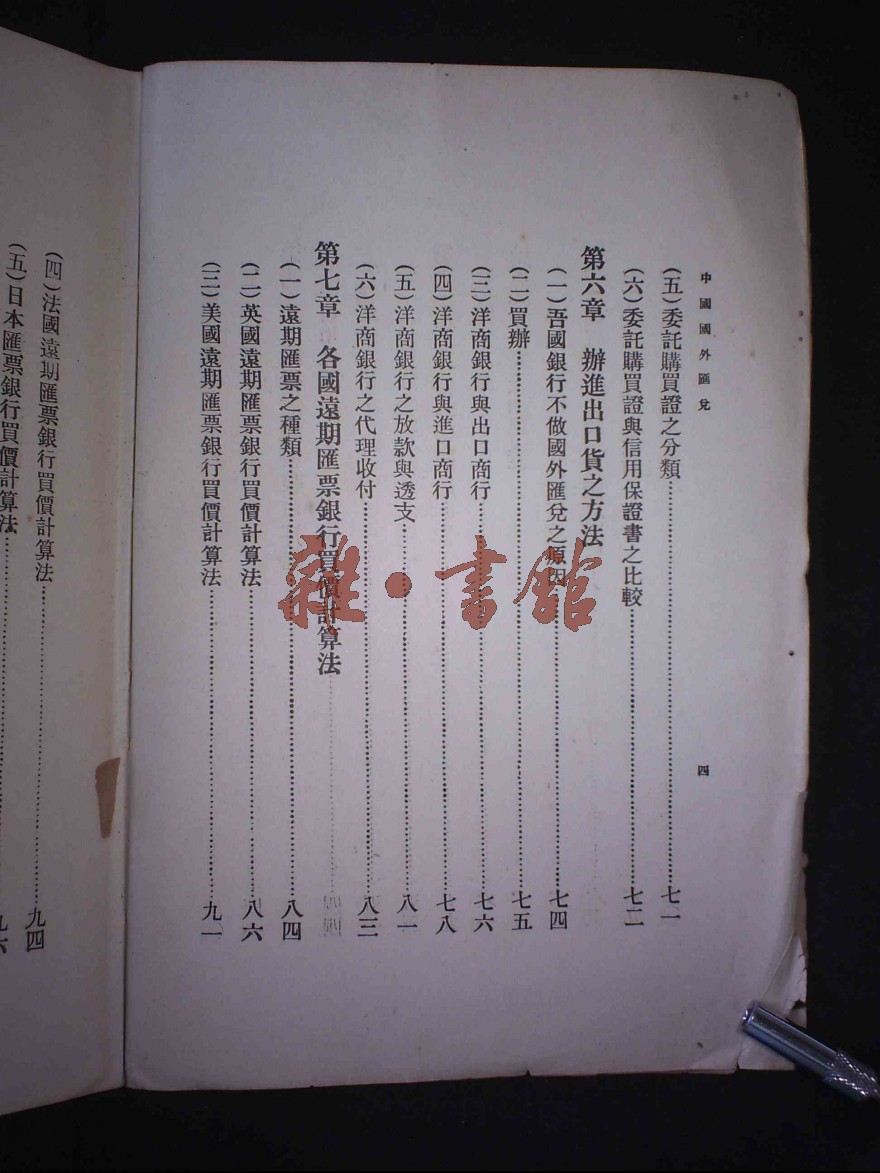 中國國外匯兌
四
(五)委託購買證之分類……七一
(六)委託購買證與信用保證書之比較……七二
第六章　辦進出口貨之方法
(一)吾國銀行不做國外匯兌之原因……七四
(二)買辦……七五
(三)洋商銀行與出口商行……七六
(四)洋商銀行與進口商行……七八
(五)洋商銀行之放款與透支……八一
(六)洋商銀行之代理收付……八三
第七章　各國遠期匯票銀行買價計算法
(一)遠期匯票之種類……八四
(二)英國遠期匯票銀行買價計算法……八六
(三)美國遠期匯票銀行買價計算法……九一
(四)法國遠期匯票銀行買價計算法……九四
(五)日本匯票銀行買價計算法……九六
雜·書館